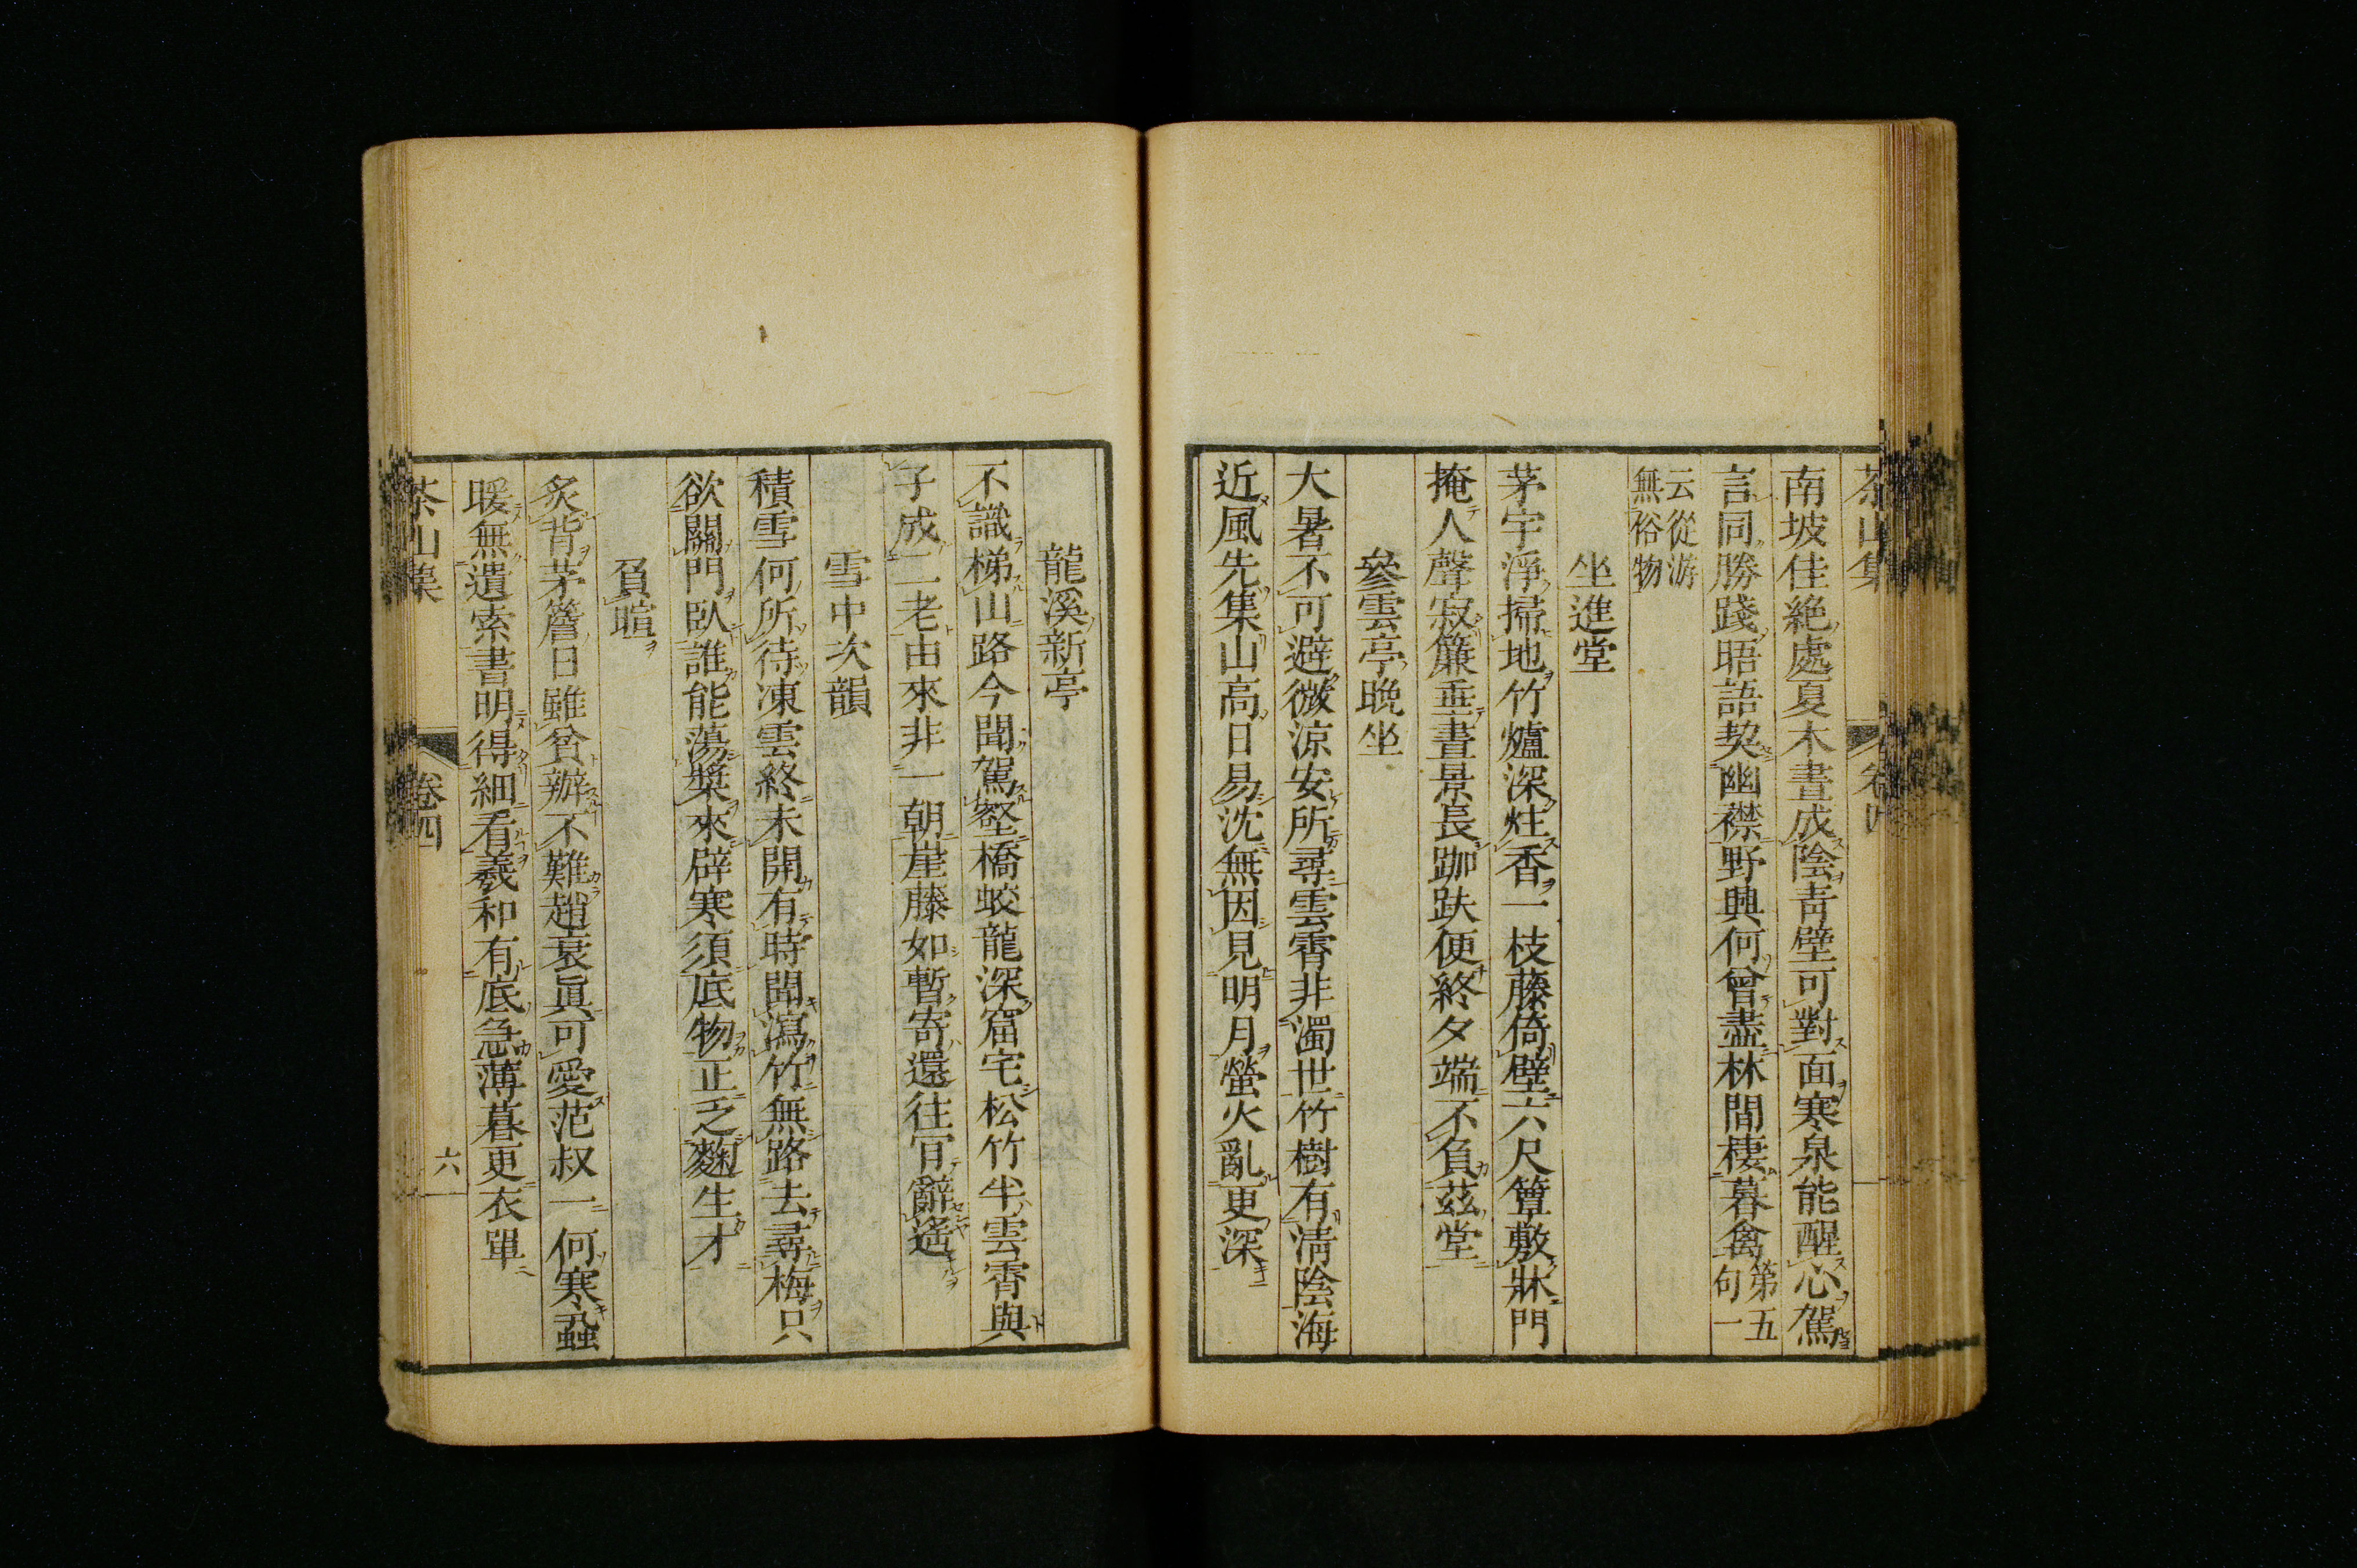 茶山集 卷四
南坡佳絶處夏木晝成陰靑壁可對面寒泉能醒心駕
言同勝踐晤語契幽襟野興何曾盡林間棲暮禽第五句一
云從游無俗物
坐進堂
茅宇淨掃地竹爐深炷香一枝藤倚壁六尺簟敷牀門
掩人聲寂簾垂晝景長跏趺便終夕端不負茲堂
參雲亭晩坐
大暑不可避微涼安所尋雲霄非濁世竹樹有淸陰海
近風先集山高日易沈無因見明月螢火亂更深
龍溪新亭
不識梯山路今聞駕壑橋蛟龍深窟宅松竹半雲霄與
子成二老由來非一朝崖藤如暫寄還往肎辭遙
雪中次韻
積雪何所待凍雲終未開有時聞瀉竹無路去尋梅只
欲關門臥誰能蕩槳來辟寒須底物正乏麴生才
負暄
炙背茅簷日雖貧辦不難趙衰眞可愛范叔一何寒蝨
暖無遺索書明得細看羲和有底急薄暮更衣單
茶山集 卷四 六